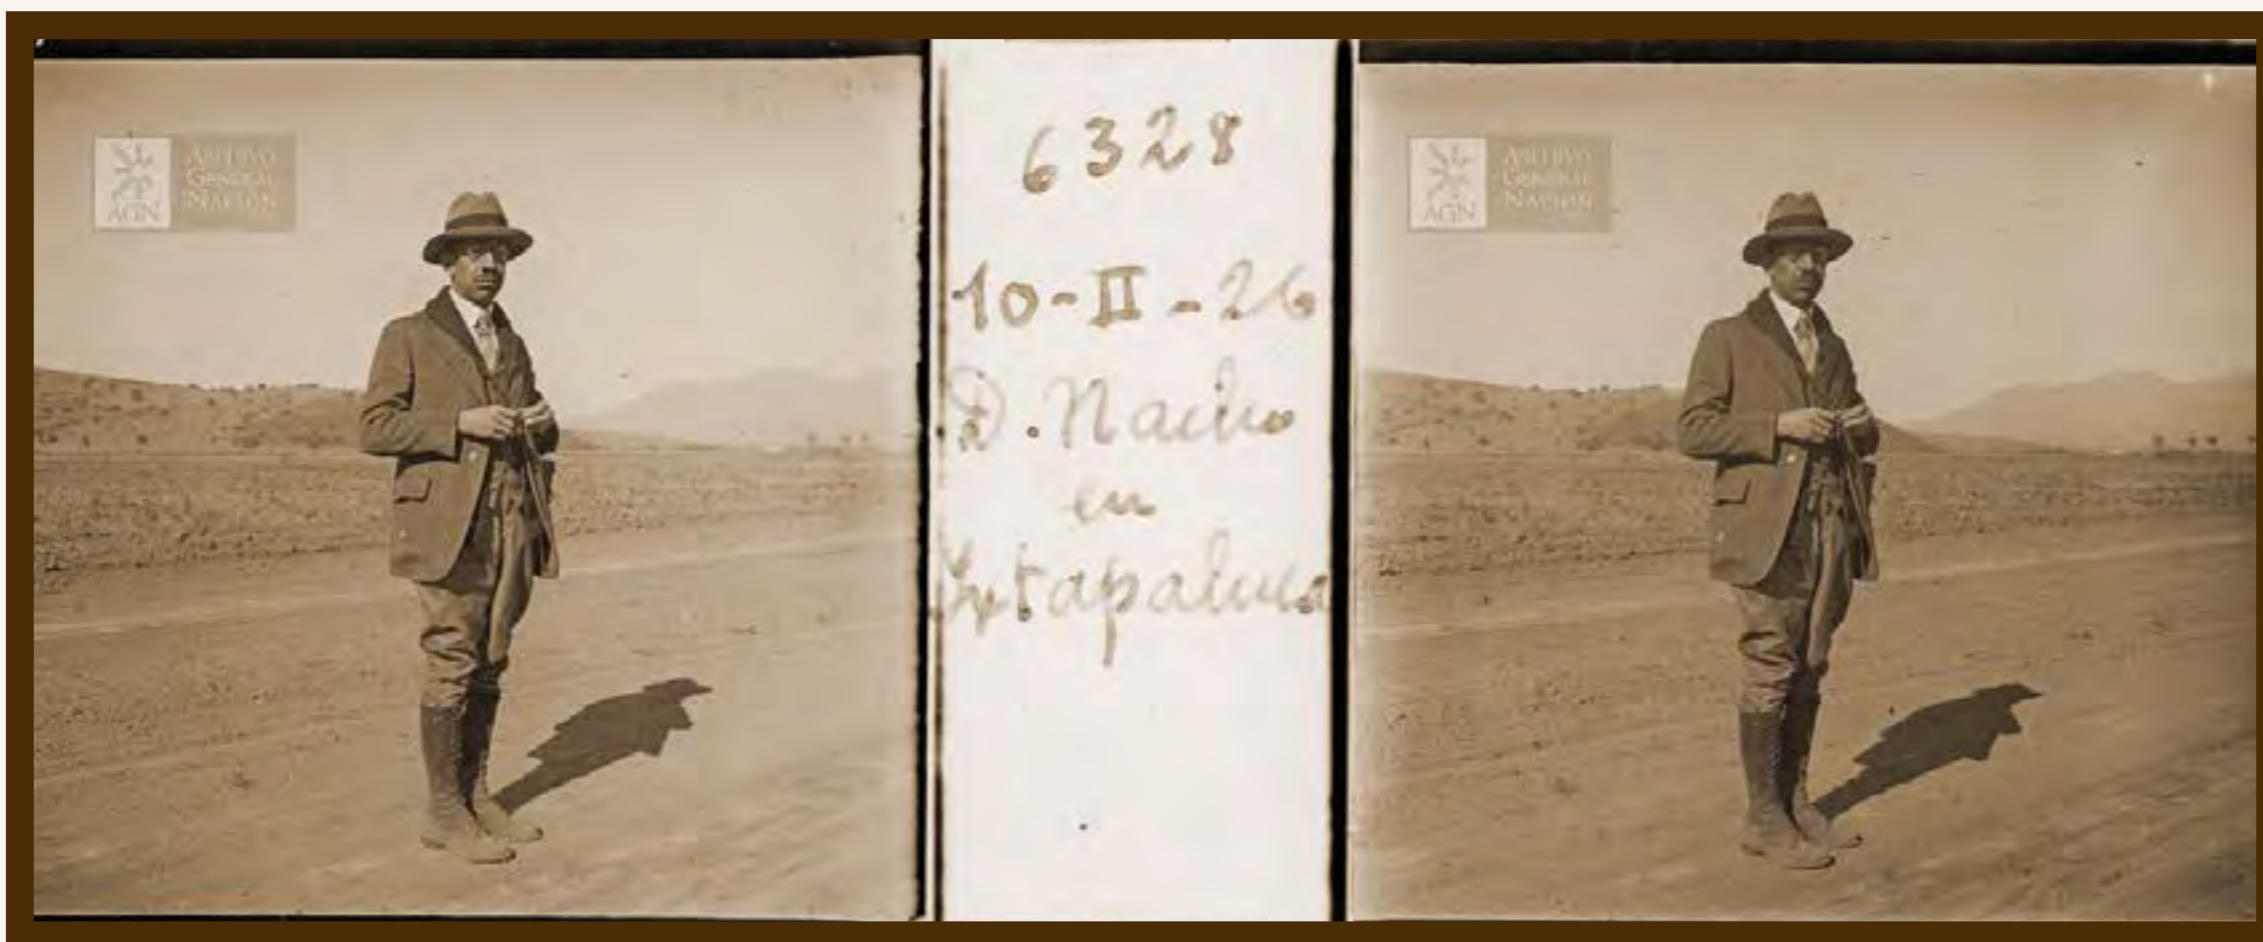 ARCHIVO
GENERAL
NACIÓN
AGN
6328
10-II-26
D. Nacho
en
Ixtapaluca
ARCHIVO
GENERAL
NACIÓN
AGN